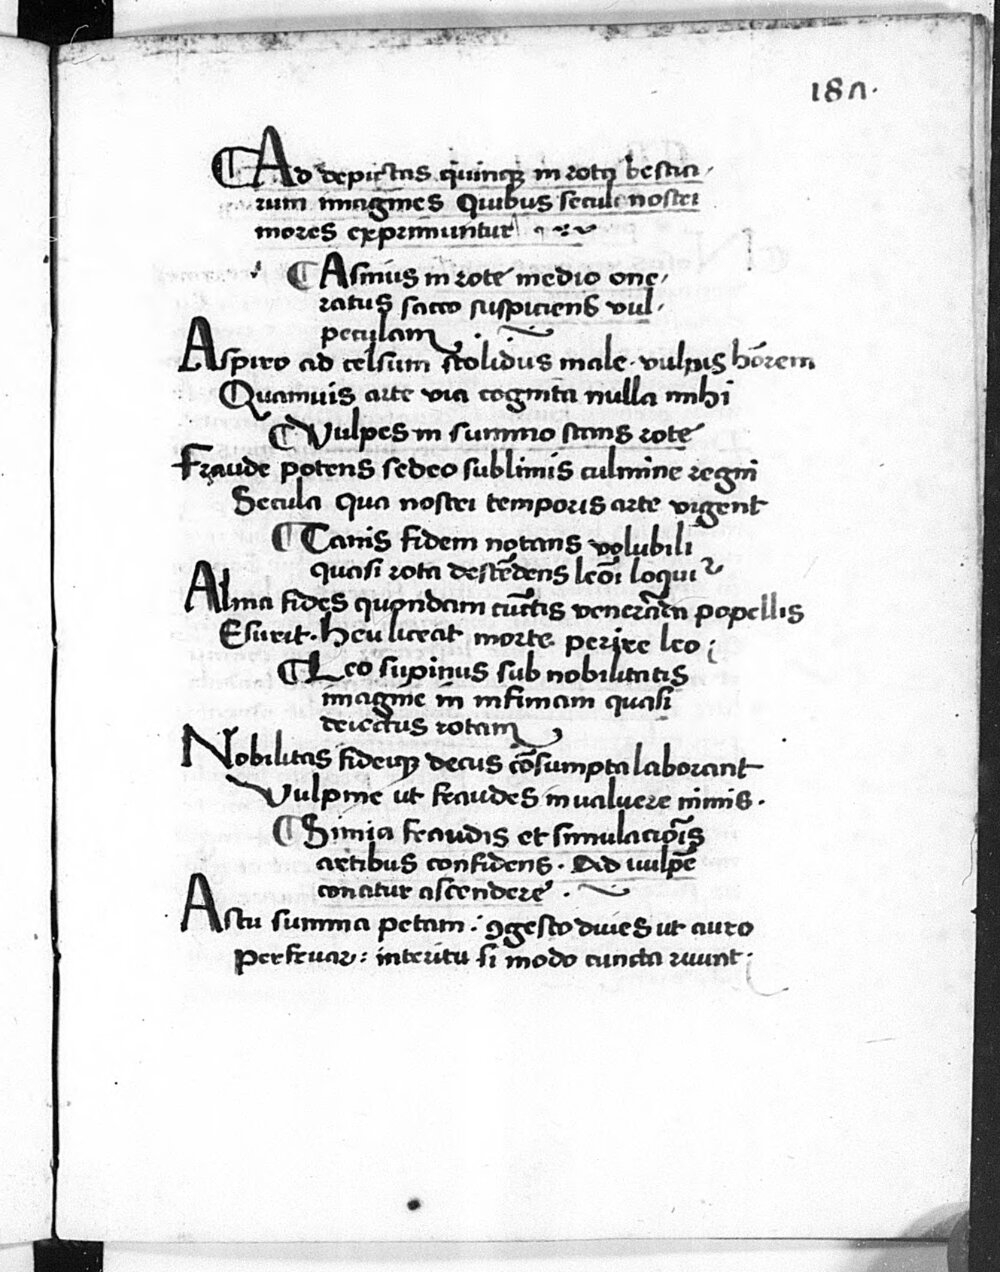 187.
¶ Ad depictas quinq̃ in rota bestia-
rum imagines Quibus seculi nostri
mores exprimuntur
¶ Asinus in rote medio one-
ratus sacco suspiciens vul-
peculam
Aspiro ad celsum stolidus male. vulpis hōrem
Quamuis arte via cognita nulla mihi
¶ Vulpes in summo stans rote
Fraude potens sedeo sublimis culmine regni
Secula qua nostri temporis arte vigent
¶ Canis fidem notans volubili
quasi rota descēdens leōi loquit᷑
Alma fides quondam cūctis venerāda popellis
Esurit. heu liceat morte perire leo;
¶ Leo supinus sub nobilitatis
imagine in infimam quasi
deiectus rotam
Nobilitas fideiq̃ decus cōsumpta laborant
Vulpine ut fraudes inualuere nimis.
¶ Simia fraudis et simulacio͂is
artibus confidens. Ad vulpē
conatur ascendere.
Astu summa petam. ꝯgesto diues ut auro
Perfruar: interitu si modo cuncta ruunt.